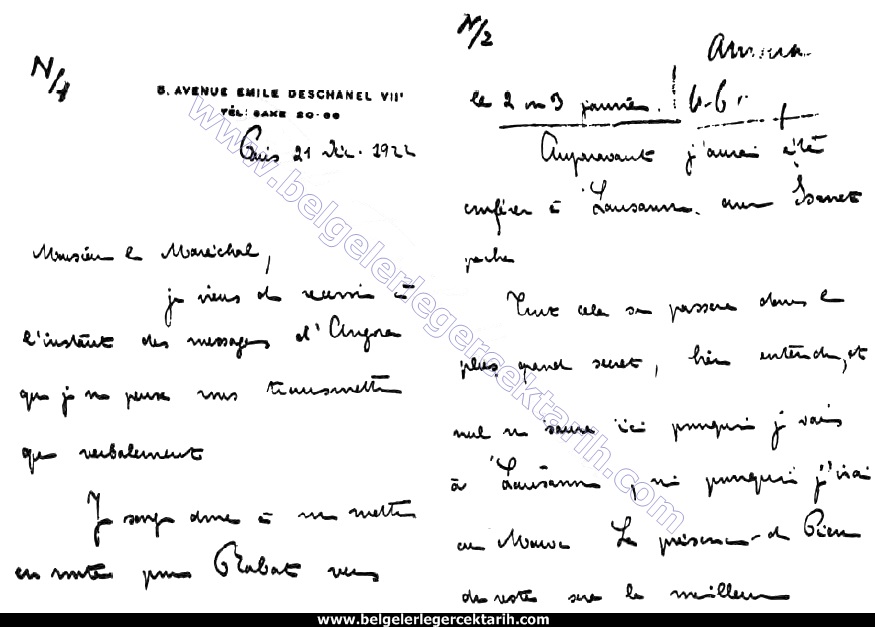 N/1
5, AVENUE EMILE DESCHANEL VIIe
TÉL: SAXE 20-66
Paris 21 Déc. 1922
Monsieur le Maréchal,
je viens de recevoir à
l'instant des messages d'Angora
que je ne peux vous transmettre
que verbalement
Je songe donc à me mettre
en route pour Rabat vers
N/2
le 2 ou 3 janvier.
Auparavant j'aurai été
conférer à Lausanne avec Ismet
pacha
Tout cela se passera dans le
plus grand secret, bien entendu, et
nul ne saura ici pourquoi je vais
à Lausanne, ni pourquoi j'irai
au Maroc La présence de Pierre
du reste sera le meilleur
www.belgelerlegercektarih.com
www.belgelerlegercektarih.com